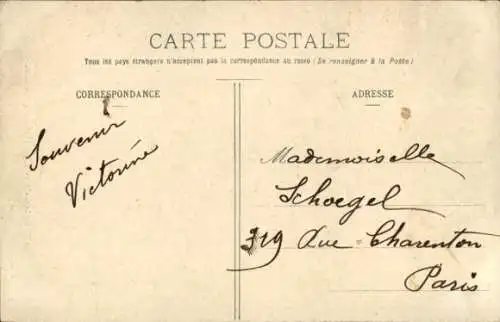 CARTE POSTALE
Tous les pays étrangers n'acceptent pas la correspondance au recto (Se renseigner à la Poste)
CORRESPONDANCE
ADRESSE
Souvenir
Victorine
Mademoiselle
Schoegel
319 Rue Charenton
Paris